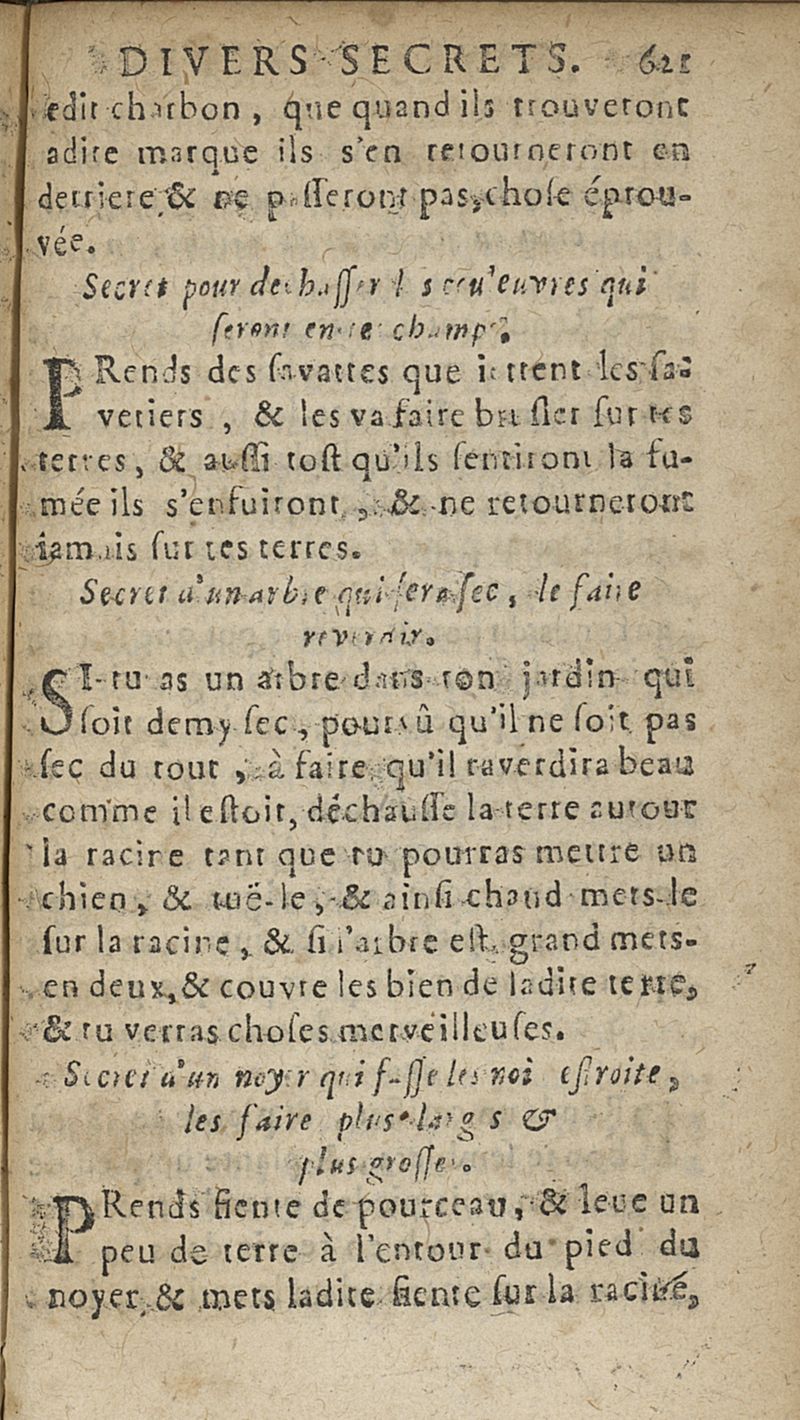 DIVERS SECRETS. 621
edit charbon, que quand ils trouveront
adite marque ils s'en retourneront en
derriere, & ne passeront pas, chose éprou-
vée.
Secret pour dechasser les couleuvres qui
seront en tes champs.
PRends des savattes que jettent les sa-
vetiers, & les va faire brusler sur tes
terres, & aussi tost qu'ils sentiront la fu-
mée ils s'enfuiront, & ne retourneront
iamais sur tes terres.
Secret d'un arbre qui sera sec, le faire
reverdir.
SI tu as un arbre dans ton jardin qui
soit demy sec, pourvû qu'il ne soit pas
sec du tout, à faire qu'il raverdira beau
comme il estoit, déchausse la terre autour
la racine tant que tu pourras mettre un
chien, & tuë-le, & ainsi chaud mets-le
sur la racine, & si l'arbre est grand mets-
en deux, & couvre les bien de ladite terre,
& tu verras choses merveilleuses.
Secret d'un noyer qui fasse les noi estroite,
les faire plus larges &
plus grosses.
PRends fiente de pourceau, & leve un
peu de terre à l'entour du pied du
noyer, & mets ladite fiente sur la racine,